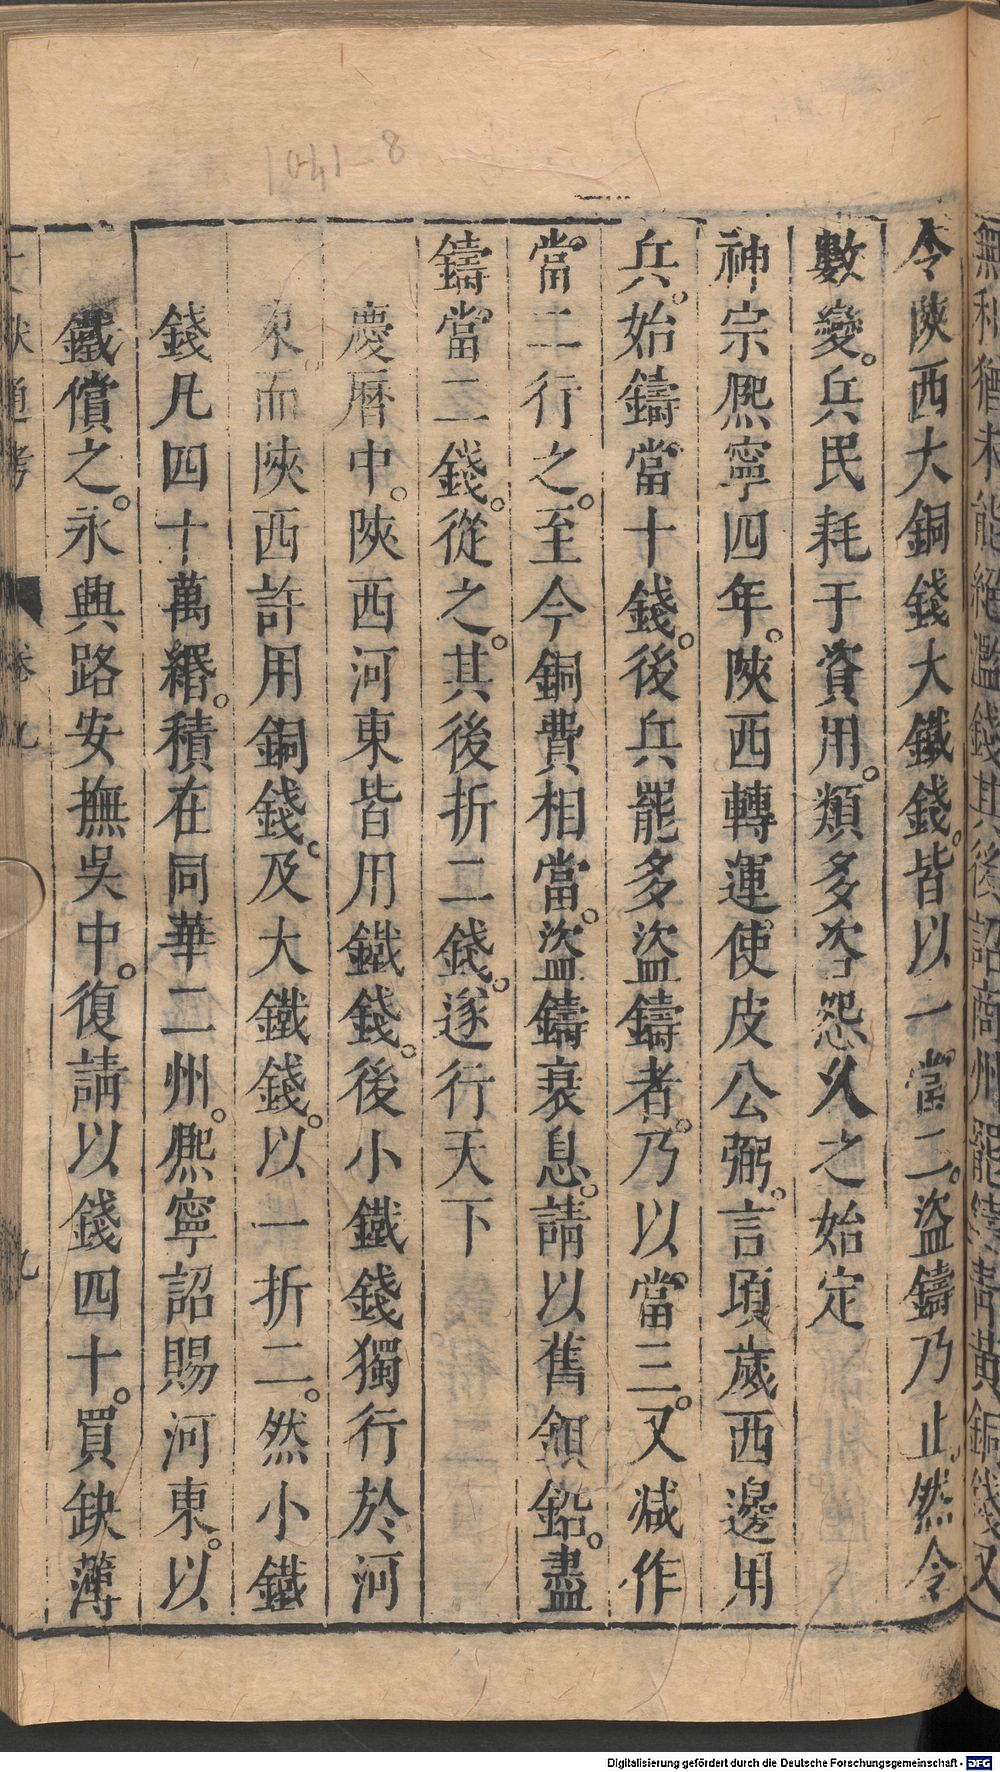 1041-8
無利猶未能絕濫錢其後詔商州罷鑄青黃銅錢又
令陝西大銅錢大鐵錢。皆以一當二。盜鑄乃止。然令
數變。兵民耗于資用。類多咨怨久之始定
神宗熈寧四年。陝西轉運使皮公弼。言頃歲西邊用
兵。始鑄當十錢。後兵罷多盜鑄者。乃以當三。又減作
當二行之。至今銅費相當。盜鑄衰息。請以舊銅鉛。盡
鑄當二錢。從之。其後折二錢。遂行天下
慶曆中。陝西河東皆用鐵錢。後小鐵錢獨行於河
東。而陝西許用銅錢。及大鐵錢。以一折二。然小鐵
錢凡四十萬緡。積在同華二州。熈寧詔賜河東。以
鐵償之。永興路安撫吳中。復請以錢四十。買缺薄
文獻通考 卷九 九
Digitalisierung gefördert durch die Deutsche Forschungsgemeinschaft - DFG